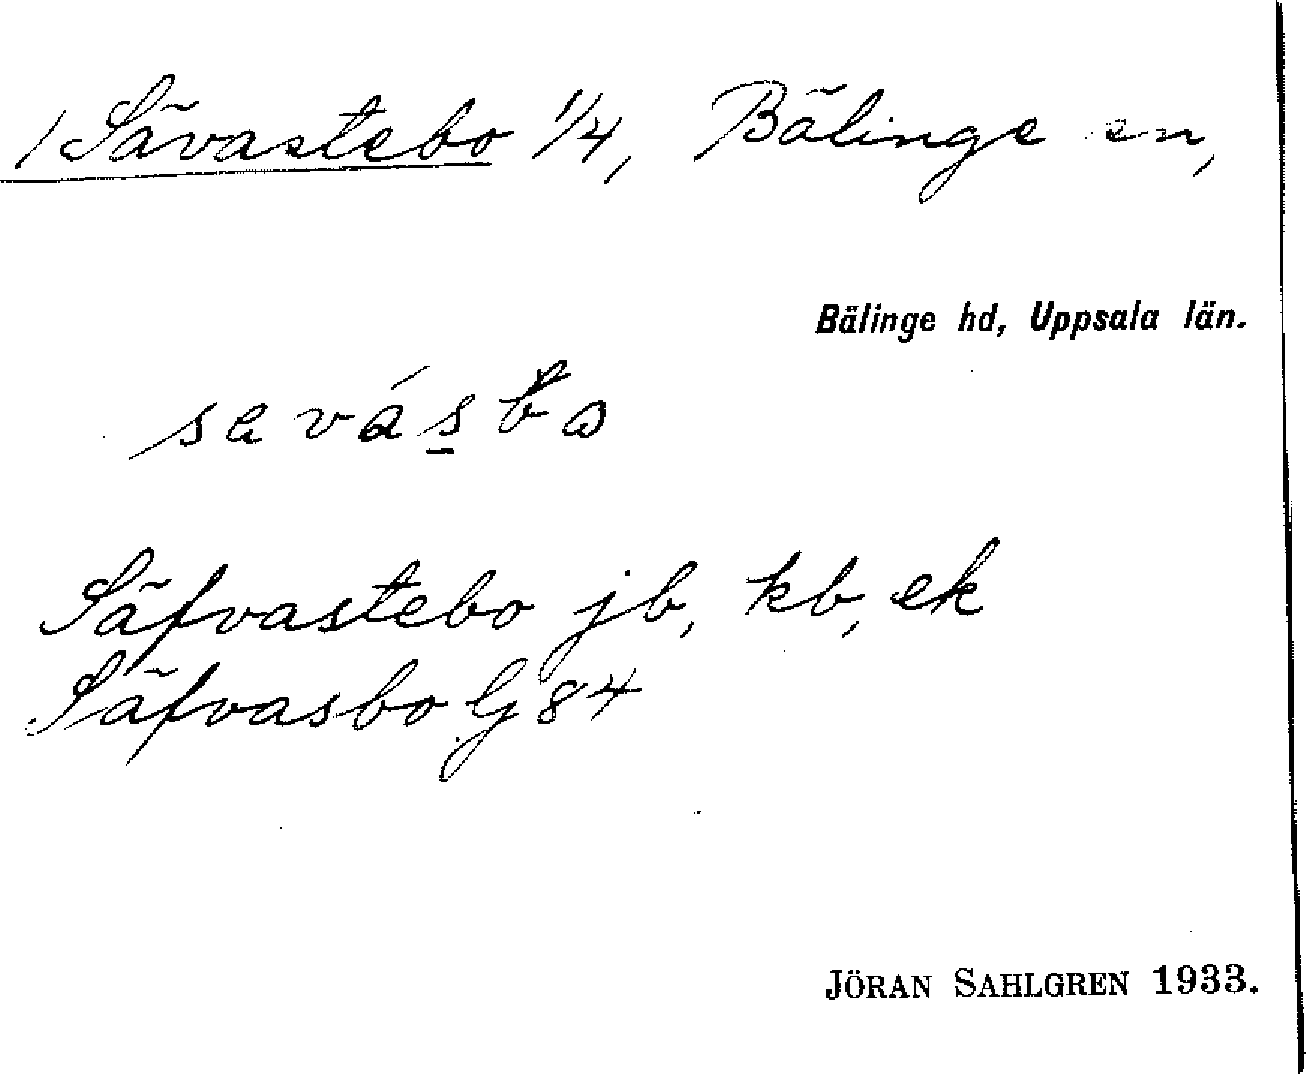 / Sävastebo 1/4, Bälinge sn,
Bälinge hd, Uppsala län.
Säfvastebo jb, kb, ek
Säfvasbo Gj 84
JÖRAN SAHLGREN 1933.